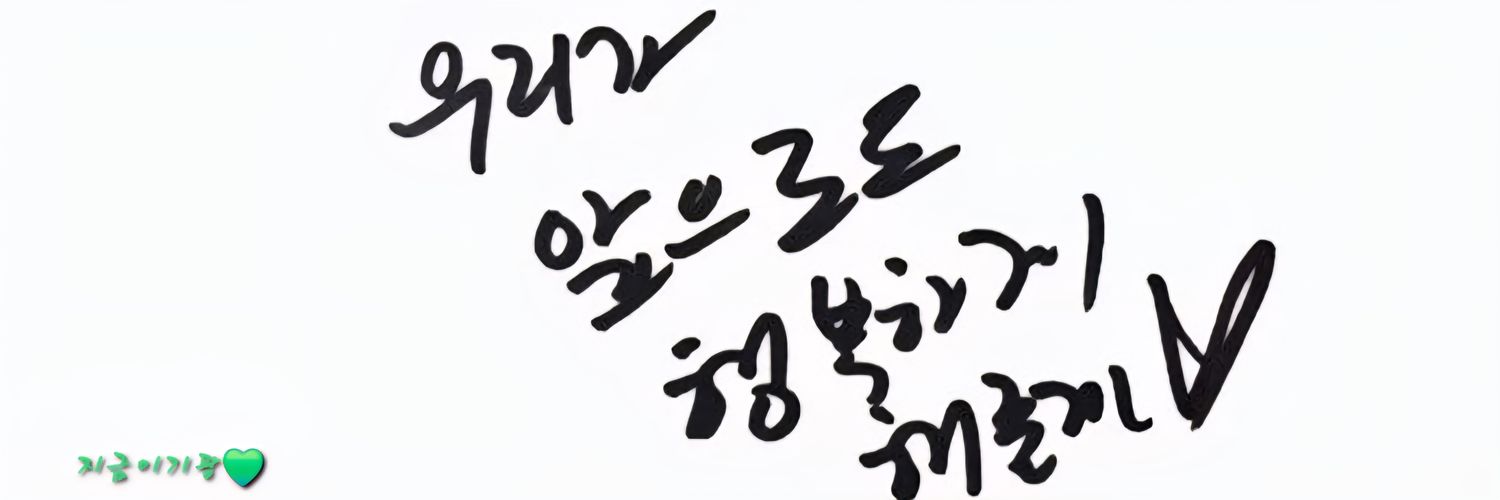 우리가
앞으로도
행복하게
해줄게
지금이기광💚